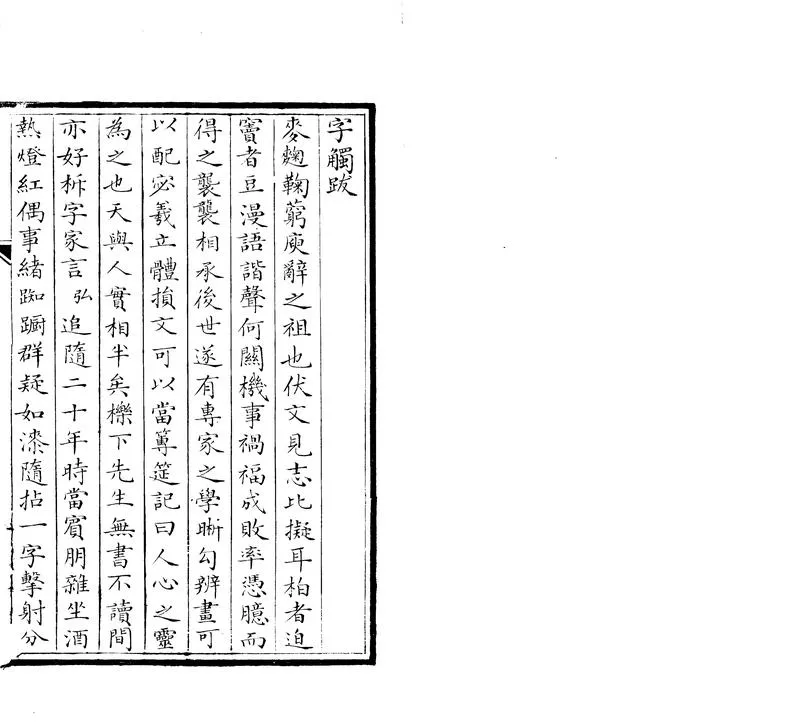 字觸跋
麥麴鞠藭庾辭之祖也伏文見志比擬耳柏者迫
竇者豆漫語諧聲何關機事禍福成敗率憑臆而
得之襲襲相承後世遂有專家之學晰勾辨畫可
以配宓羲立體損文可以當篿筳記曰人心之靈
為之也天與人實相半矣櫟下先生無書不讀間
亦好柝字家言弘追隨二十年時當賓朋雜坐酒
熱燈紅偶事緒踟躕群疑如漆隨拈一字擊射分